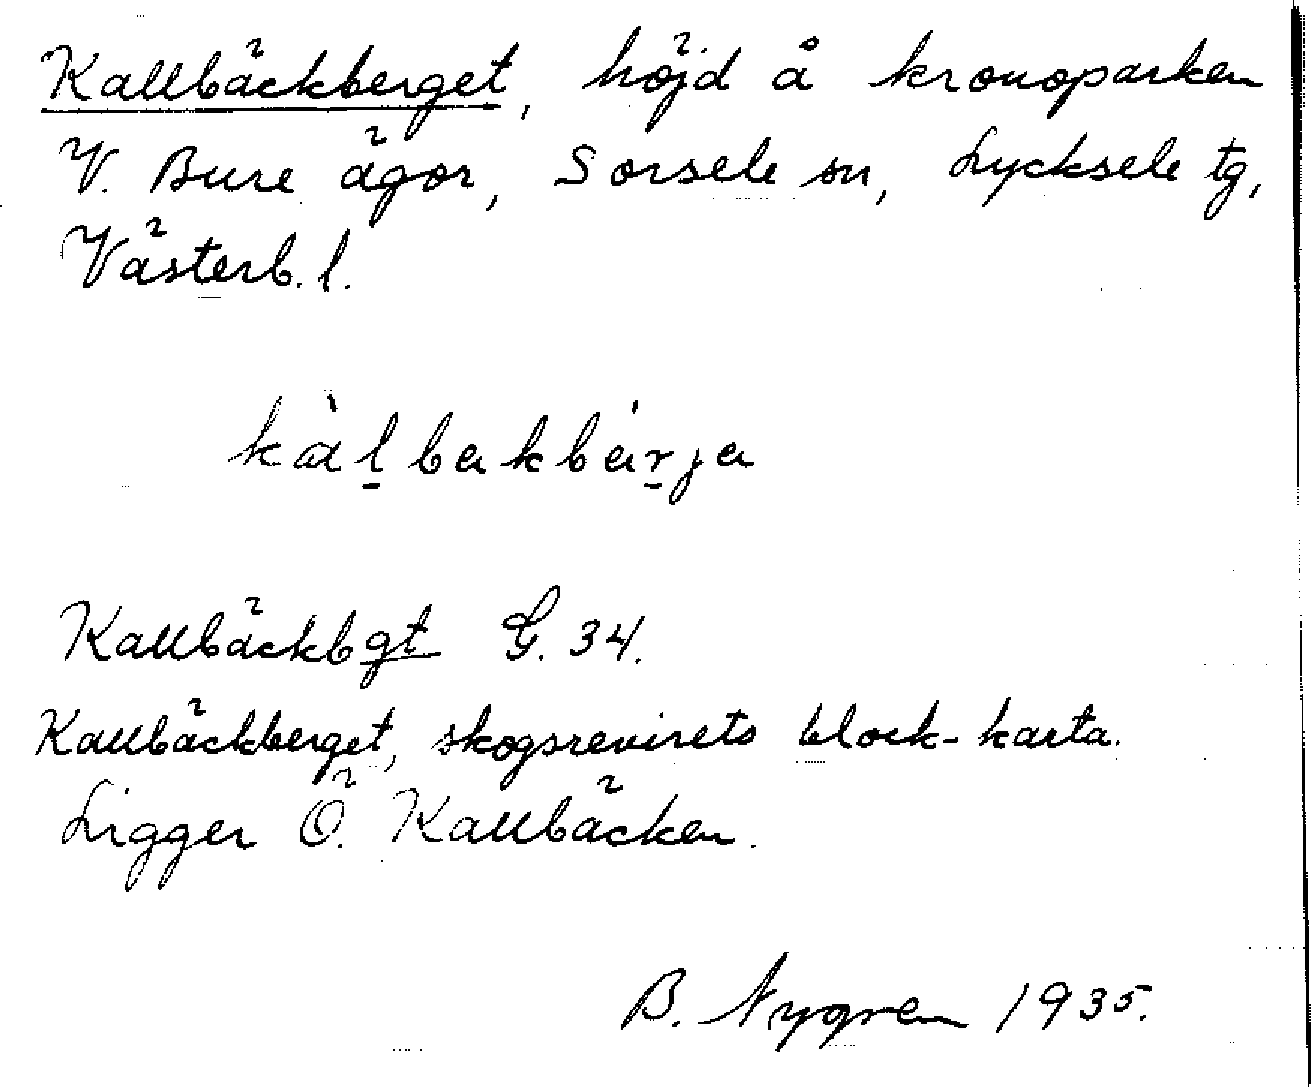 Kallbäckberget, höjd å kronoparken
V. Bure ägor, Sorsele sn, Lycksele tg,
Västerb. l.
kàl̠bakbár̠ja
Kallbäckbgt G. 34.
Kallbäckberget, skogsrevirets block-karta.
Ligger Ö. Kallbäcken.
B. Nygren 1935.